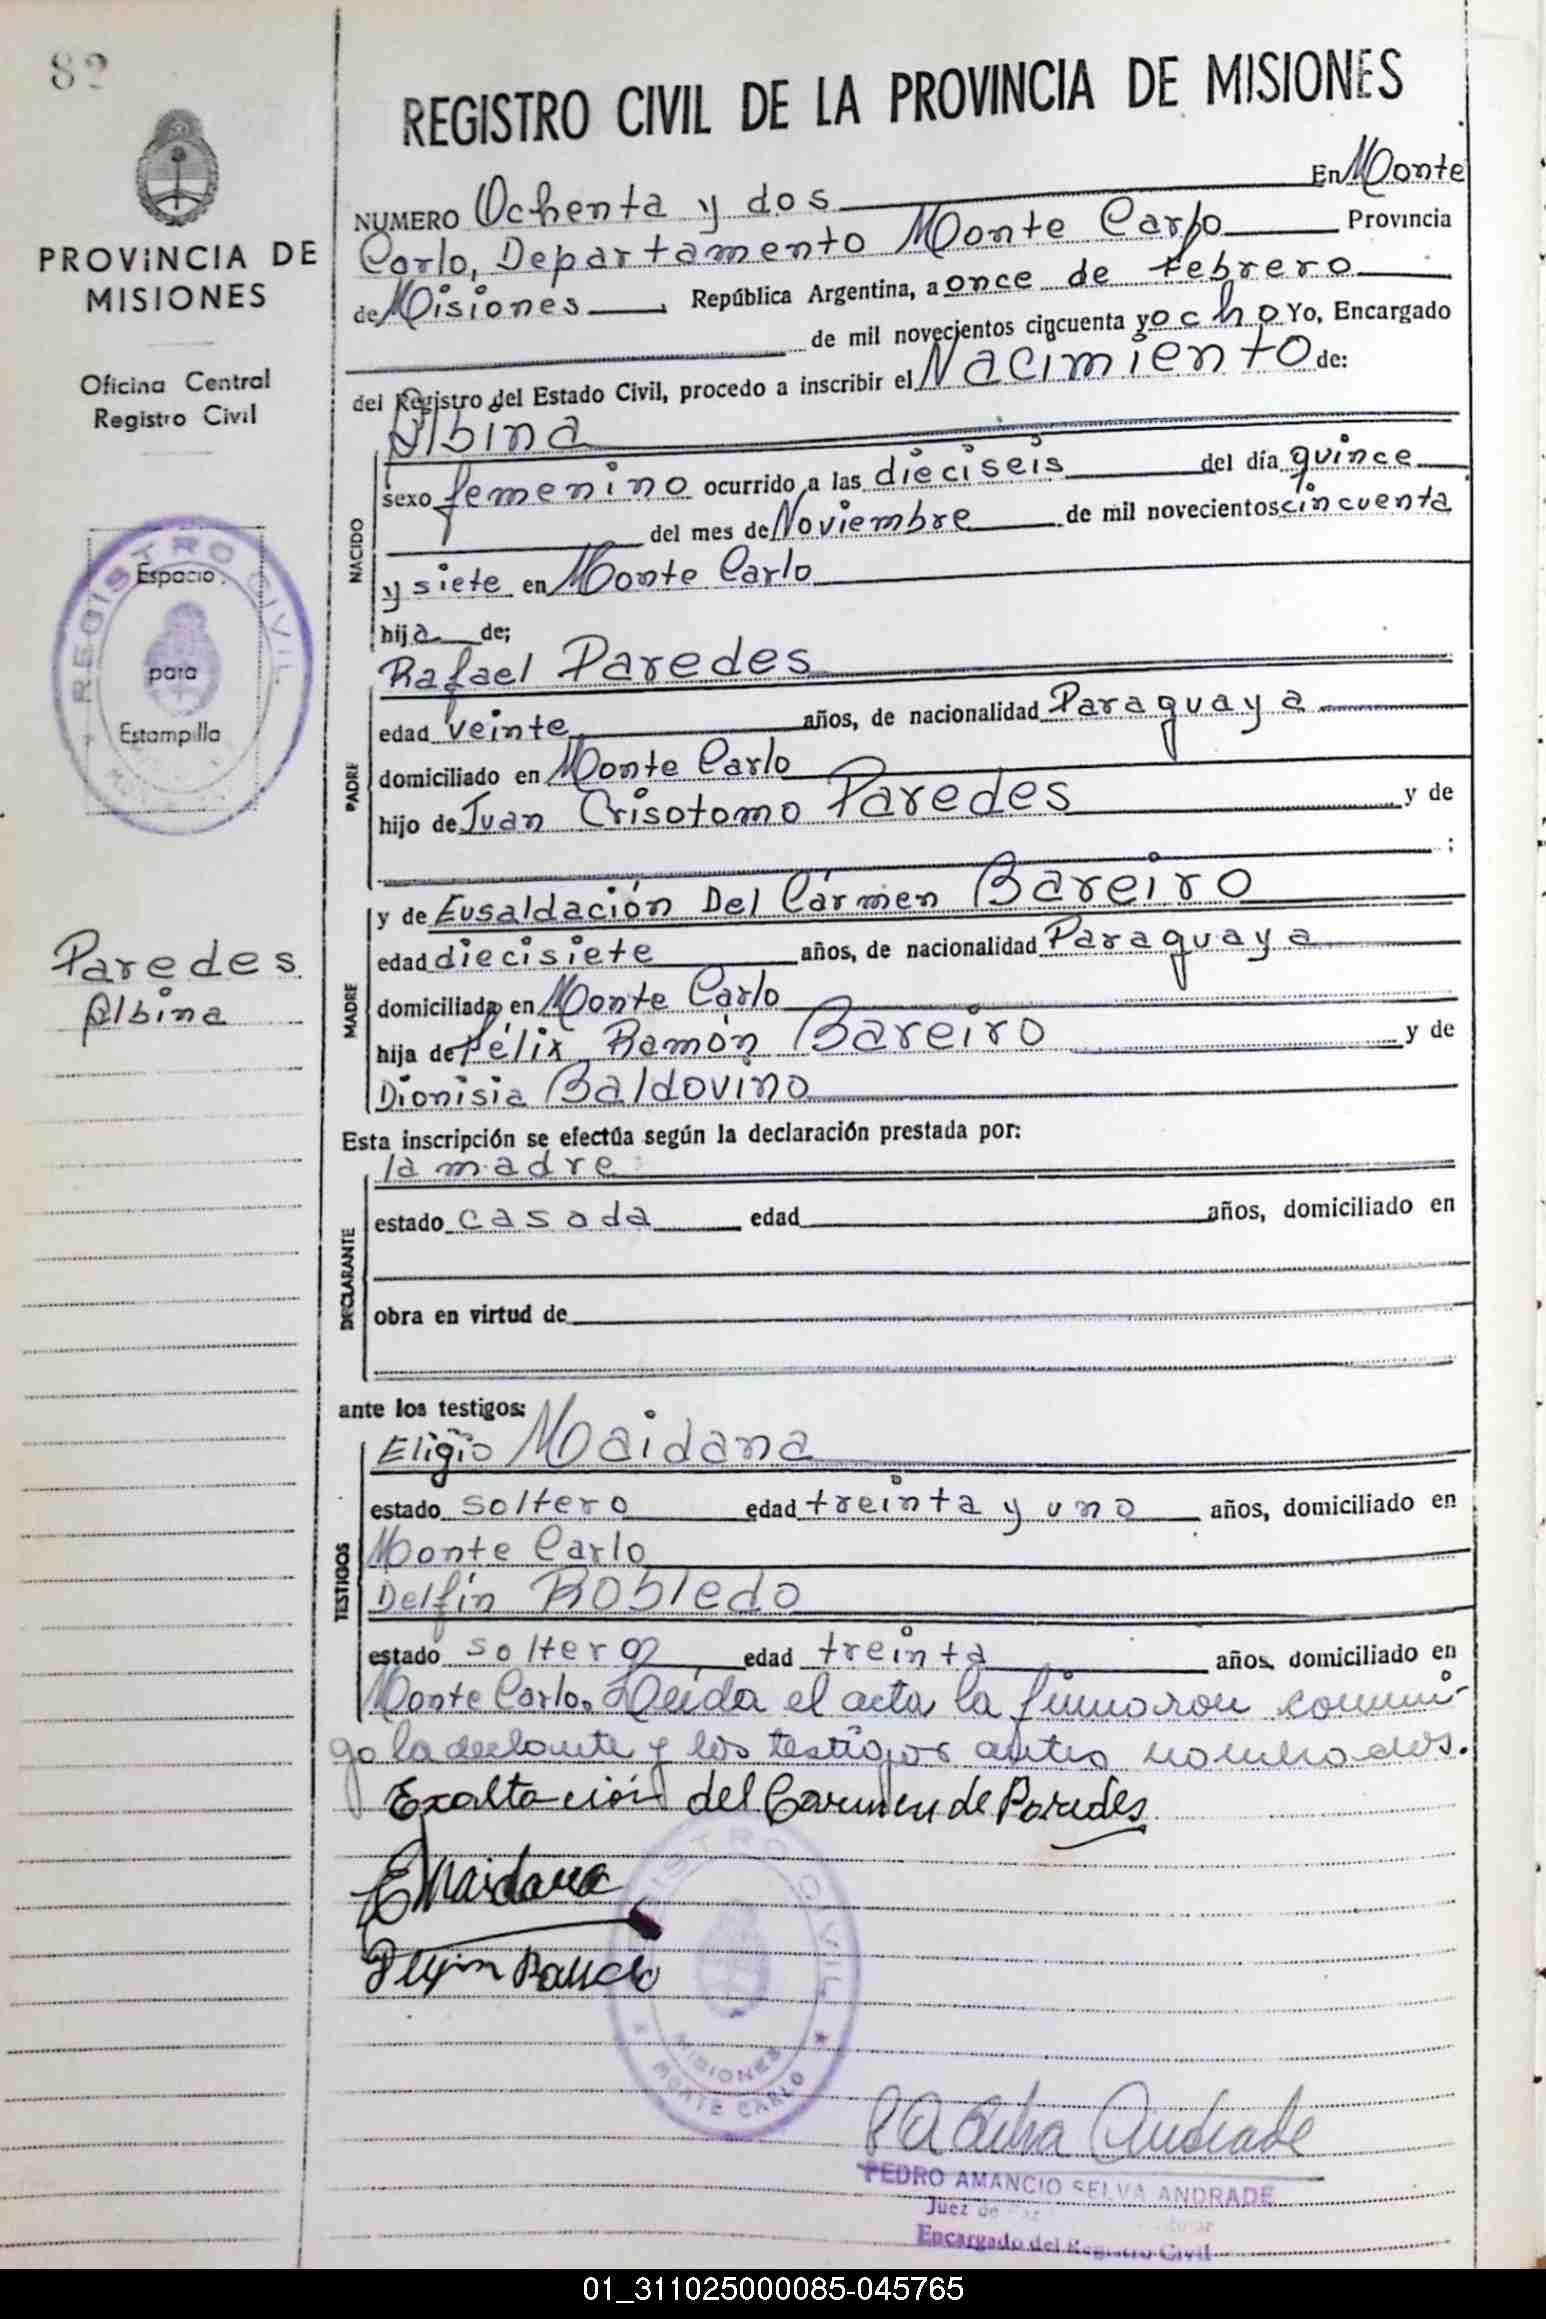 82
PROVINCIA DE
MISIONES
Oficina Central
Registro Civil
REGISTRO CIVIL
Espacio
para
Estampilla
Paredes
Albina
REGISTRO CIVIL DE LA PROVINCIA DE MISIONES
NUMERO Ochenta y dos En Monte
Carlo, Departamento Monte Carlo Provincia
de Misiones, República Argentina, a once de Febrero
de mil novecientos cincuenta y ocho Yo, Encargado
del Registro del Estado Civil, procedo a inscribir el Nacimiento de:
NACIDO
Albina
sexo femenino ocurrido a las dieciseis del día quince
del mes de Noviembre de mil novecientos cincuenta
y siete en Monte Carlo
hija de;
PADRE
Rafael Paredes
edad veinte años, de nacionalidad Paraguaya
domiciliado en Monte Carlo
hijo de Juan Crisotomo Paredes y de
;
MADRE
y de Eusaldación Del Cármen Bareiro
edad diecisiete años, de nacionalidad Paraguaya
domiciliada en Monte Carlo
hija de Félix Ramón Bareiro y de
Dionisia Baldovino
Esta inscripción se efectúa según la declaración prestada por:
DECLARANTE
la madre
estado casada edad años, domiciliado en
obra en virtud de
ante los testigos:
TESTIGOS
Eligio Maidana
estado soltero edad treinta y uno años, domiciliado en
Monte Carlo
Delfín Robledo
estado soltero edad treinta años, domiciliado en
Monte Carlo. Leída el acta la firmaron conmi-
go la declarante y los testigos antes nombrados.
Exaltación del Carmen de Paredes
E Maidana
REGISTRO CIVIL
MISIONES
MONTE CARLO
PEDRO AMANCIO SELVA ANDRADE
Juez de
Encargado del Registro Civil
01_311025000085-045765